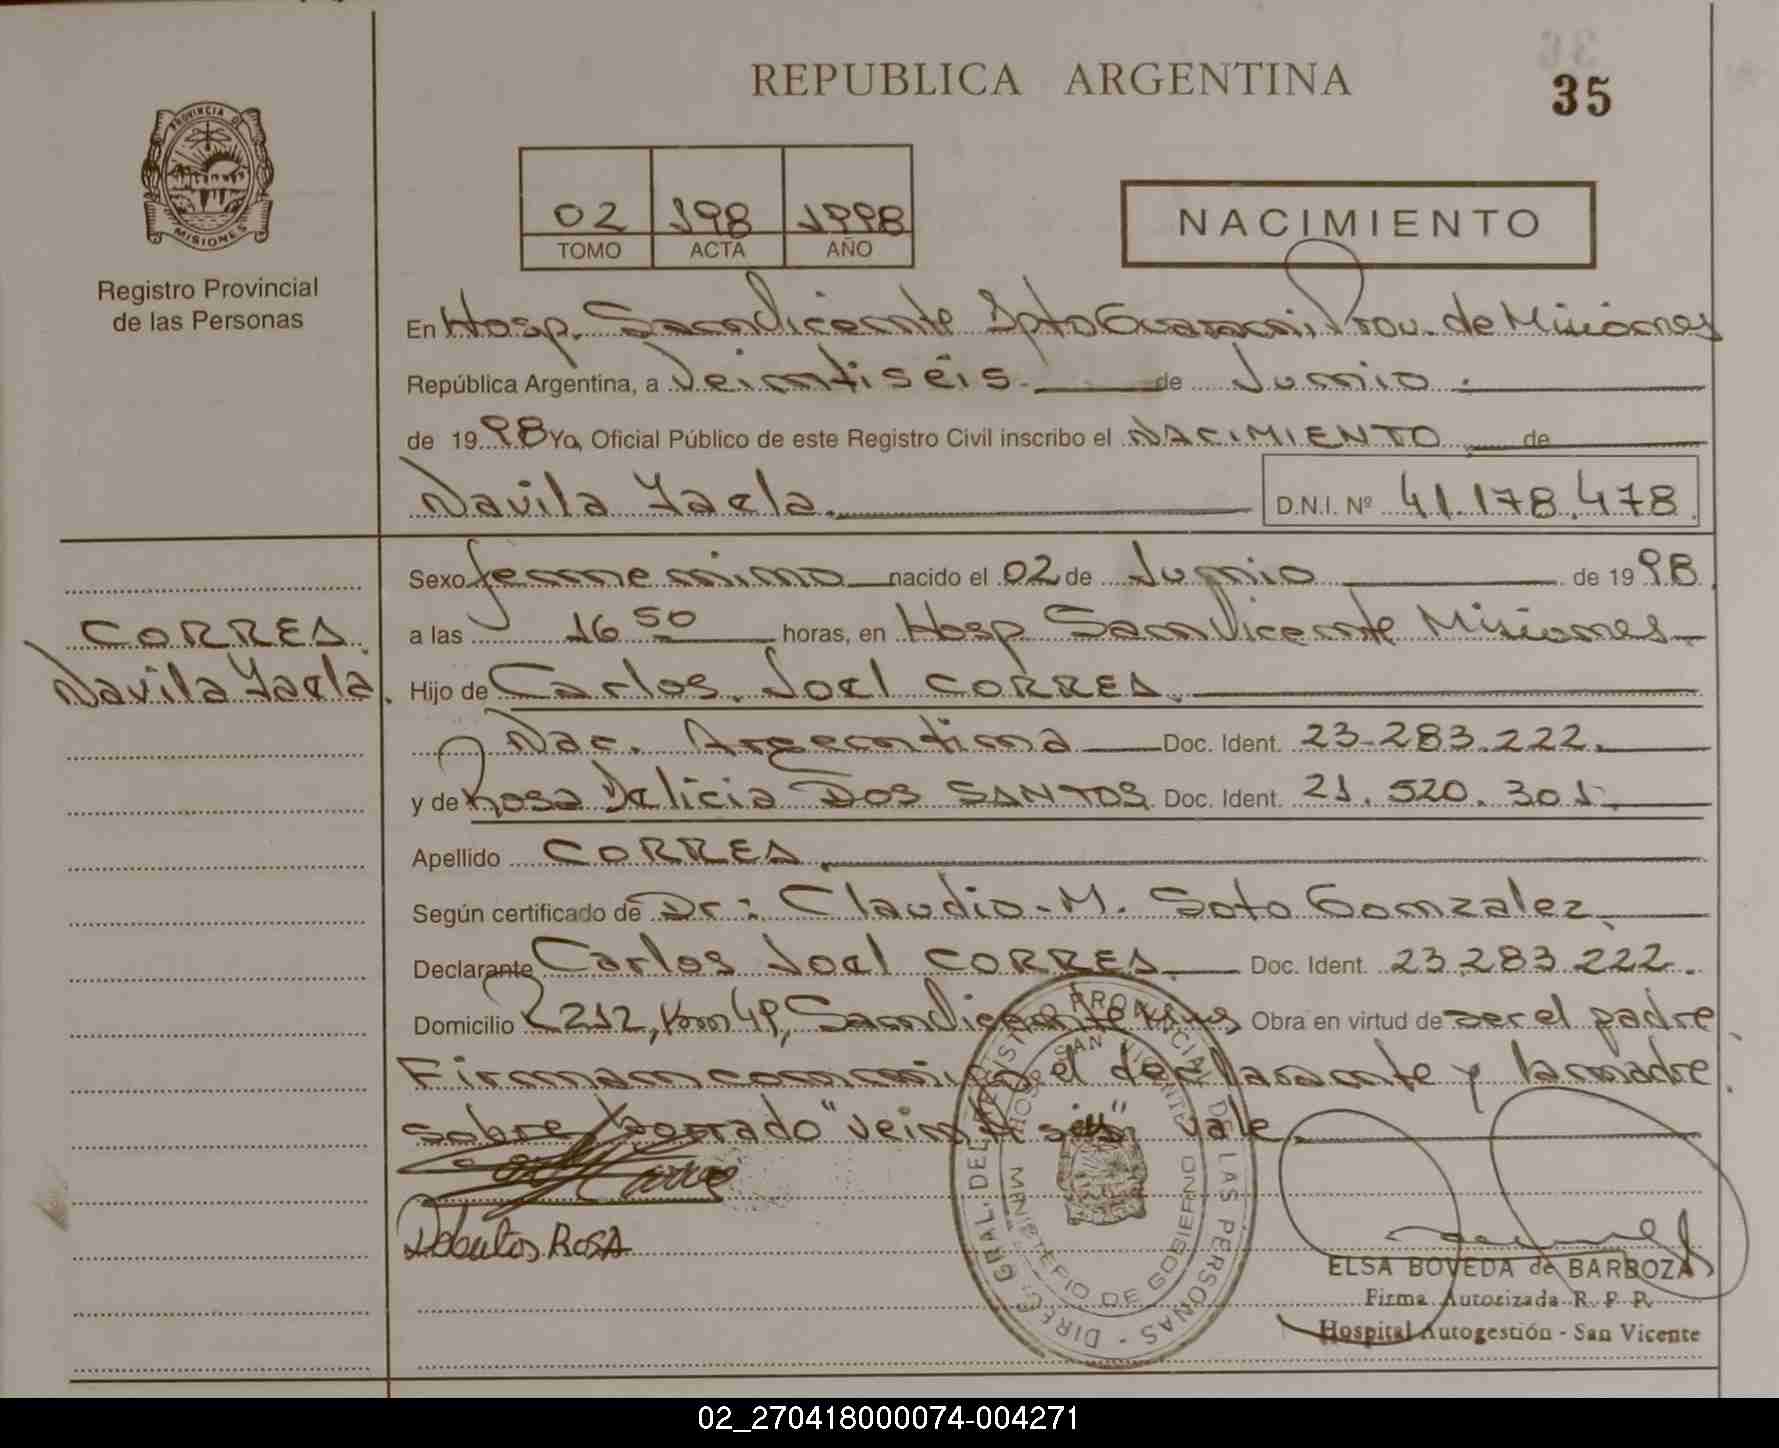 REPUBLICA ARGENTINA
35
PROVINCIA DE MISIONES
Registro Provincial
de las Personas
02 198 1998
TOMO ACTA AÑO
NACIMIENTO
En Hosp. San Vicente Dpto Guarani, Prov. de Misiones
República Argentina, a Veintiseis. de Junio.
de 1998 Yo, Oficial Público de este Registro Civil inscribo el NACIMIENTO de
Navila Yaela. D.N.I. Nº 41.178.478.
Sexo femenino nacido el 02 de Junio de 1998.
a las 16 50 horas, en Hosp San Vicente Misiones
CORREA
Navila Yaela.
Hijo de Carlos Joel CORREA.
Nac. Argentina Doc. Ident. 23.283.222.
y de Rosa Felicia DOS SANTOS. Doc. Ident. 21.520.301.
Apellido CORREA.
Según certificado de Dr: Claudio. M. Soto Gonzalez
Declarante Carlos Joel CORREA. Doc. Ident. 23.283.222.
Domicilio R 212, Km 49, San Vicente Obra en virtud de ser el padre.
Firman conmigo el declarante y la madre.
sobre borrado "veintiseis" vale.
ROSA
DIREC. GRAL. DEL REGISTRO PROVINCIAL DE LAS PERSONAS
HOSP. SAN VICENTE
MINISTERIO DE GOBIERNO
ELSA BOVEDA de BARBOZA
Firma Autorizada R. P. P.
Hospital Autogestión - San Vicente
02_270418000074-004271